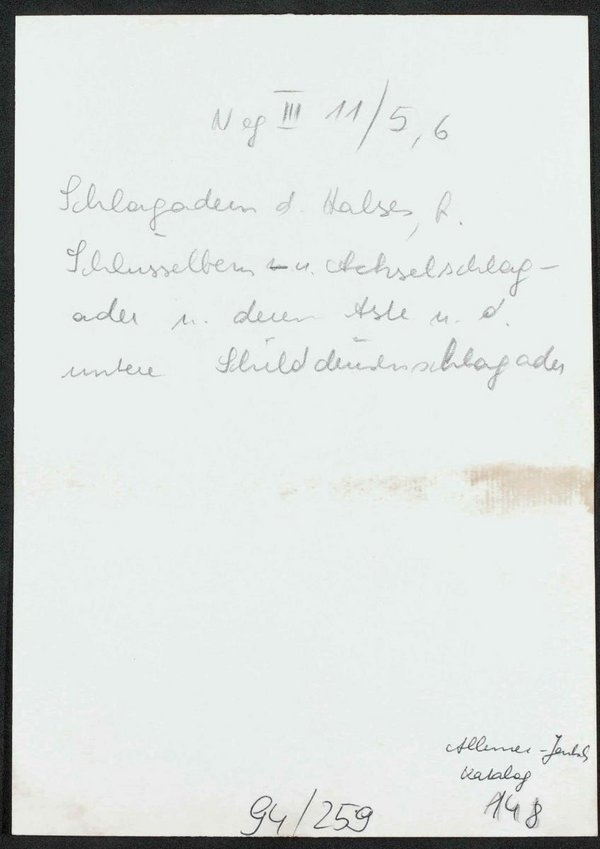 Neg III 11/5,6
Schlagadern d. Halses, R.
Schlüsselbein- u. Achselschlag-
ader u. deren Äste u. d.
untere Schilddrüsenschlagader
Allmer-Jantsch
Katalog
148
94/259